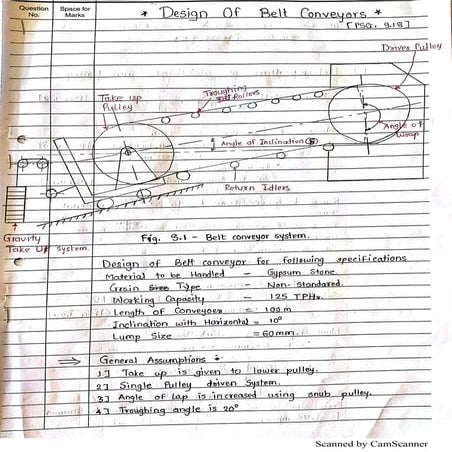 Question No.
Space for Marks
* Design Of Belt Conveyors *
[PSG. 9.18]
Driver Pulley
Take up Pulley
Troughing Rollers
Angle of Inclination
Angle of Wrap
Return Idlers
Gravity Take Up System
Fig. 3.1 - Belt conveyor system.
Design of Belt conveyor for following specifications
Material to be Handled - Gypsum Stone
Grain Type - Non-Standared
Working Capacity - 125 TPHr.
Length of Conveyor = 100m
Inclination with Horizontal = 10°
Lump Size = 60mm.
⇒ General Assumptions :
1] Take up is given to lower pulley.
2] Single Pulley driven System.
3] Angle of Lap is increased using snub pulley.
4] Troughing angle is 20°
Scanned by CamScanner